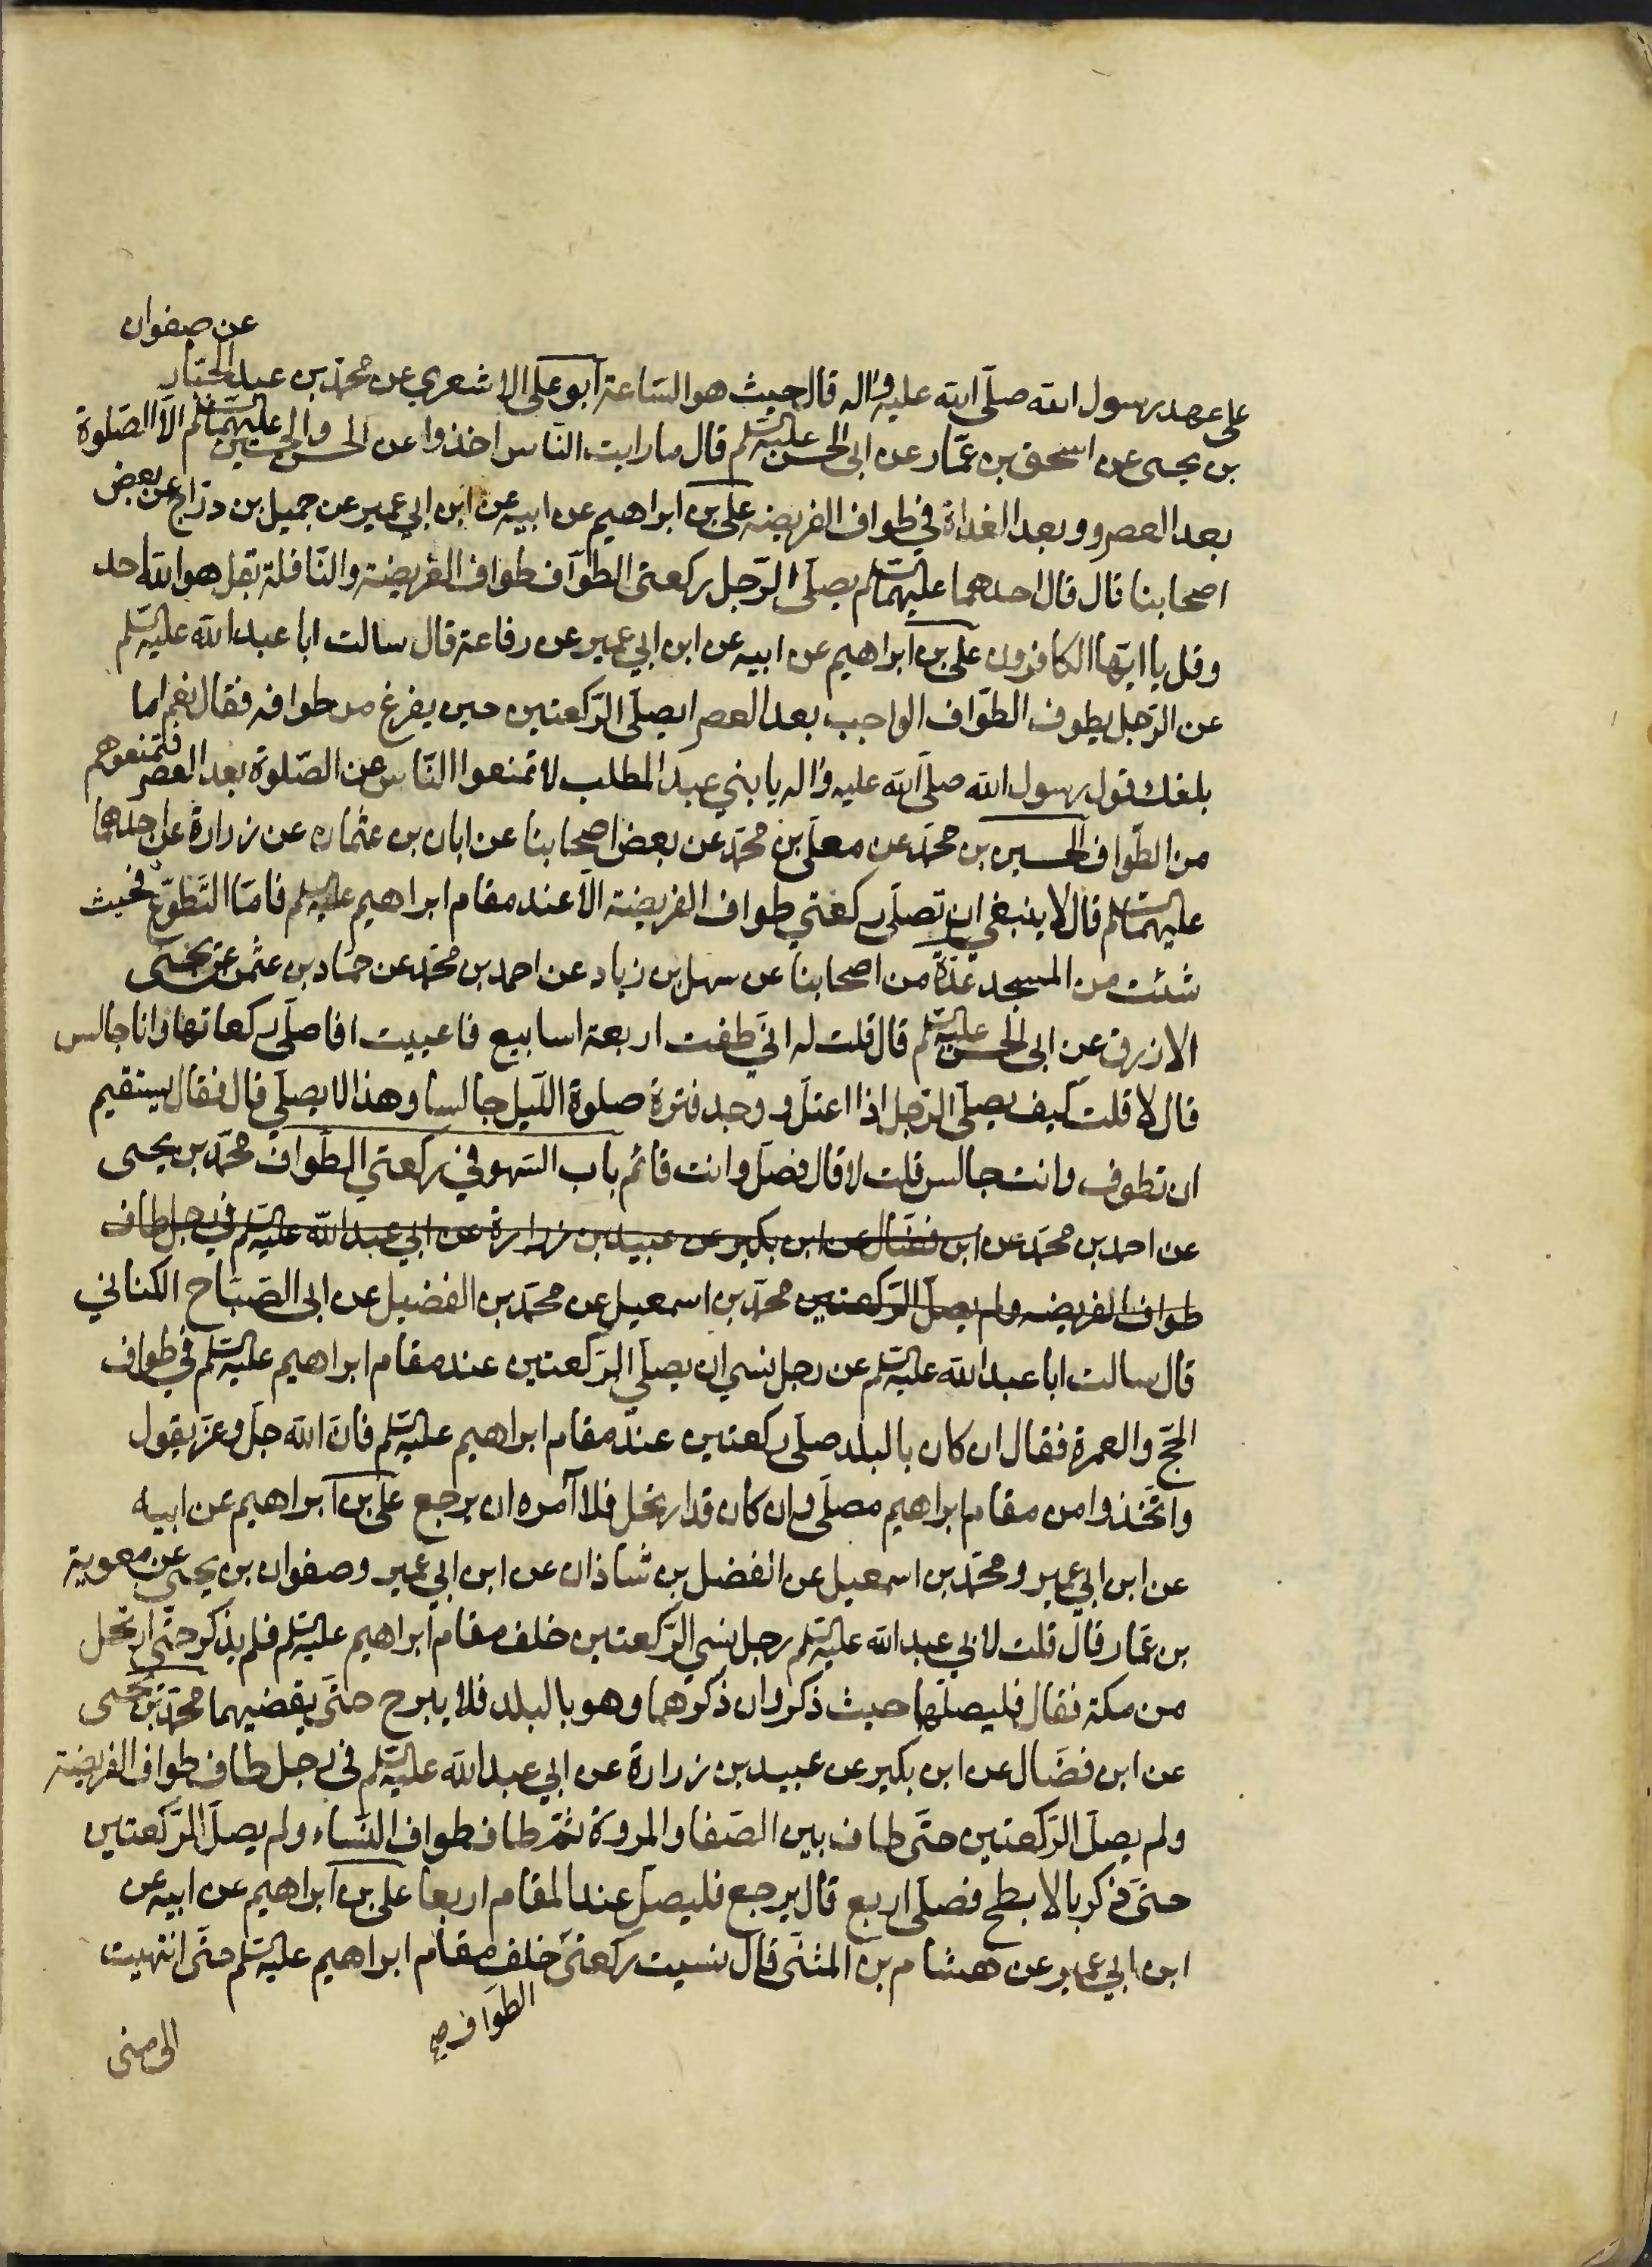 عن صفوان
على عهد رسول الله صلّى الله عليه واله قال حيث هو الساعة ابو على الاشعري عن محمّد بن عبد الجبّار
بن يحيى عن اسحق بن عمّار عن ابى الحسن عليه السّلم قال ما رايت النّاس اخذوا عن الحسن والحسين عليهما السّلم الّا الصّلوة
بعد العصر و وبعد الغداة في طواف الفريضه على بن ابراهيم عن ابيه عن ابن ابي عمير عن جميل بن درّاج عن بعض
اصحابنا قال قال احدهما عليهما السّلم يصلّى الرّجل ركعتى الطوّاف طواف الفريضة والنّافلة بقل هو الله احد
وقل يا ايّها الكافرون على بن ابراهيم عن ابيه عن ابن ابي عمير عن رفاعة قال سالت ابا عبد الله عليه السّلم
عن الرّجل يطوف الطّواف الواجب بعد العصر ايصلّى الرّكعتين حين يفرغ من طوافه فقال نعم اما
بلغك قول رسول الله صلّى الله عليه واله يا بني عبد المطلب لا تمنعوا النّاس عن الصّلوة بعد العصر فتمنعوهم
من الطّواف الحسين بن محمّد عن معلّى بن محمّد عن بعض اصحابنا عن ابان بن عثمان عن زرارة عن احدهما
عليهما السّلم قال لا ينبغي ان تصلّى ركعتي طواف الفريضة الّا عند مقام ابراهيم عليه السّلم فامّا التّطوّع فحيث
شئت من المسجد عدّة من اصحابنا عن سهل بن زياد عن احمد بن محمّد عن حمّاد بن عثمن عن يحيى
الازرق عن ابى الحسن عليه السّلم قال قلت له انّي طفت اربعة اسابيع فاعييت افاصلّى ركعاتها وانا جالس
قال لا قلت كيف يصلّى الرّجل اذا اعتلّ و وجد فترة صلوة اللّيل جالسا وهذا لا يصلي قال فقال يستقيم
ان تطوف وانت جالس قلت لا قال فصلّ وانت قائم باب السّهو في ركعتي الطّواف محمّد بن يحيى
عن احمد بن محمّد عن ابن فضّال عن ابن بكير عن عبيد بن زرارة عن ابي عبد الله عليه السّلم في رجل طاف
طواف الفريضه ولم يصلّ الرّكعتين محمّد بن اسمعيل عن محمّد بن الفضيل عن ابى الصّبّاح الكناني
قال سالت ابا عبد الله عليه السّلم عن رجل نسي ان يصلّي الرّكعتين عند مقام ابراهيم عليه السّلم في طواف
الحجّ والعمرة فقال ان كان بالبلد صلّى ركعتين عند مقام ابراهيم عليه السّلم فانّ الله جلّ وعزّ يقول
واتّخذوا من مقام ابراهيم مصلّى وان كان قد ارتحل فلا آمره ان يرجع على بن ابراهيم عن ابيه
عن ابن ابي عمير ومحمّد بن اسمعيل عن الفضل بن شاذان عن ابن ابي عمير وصفوان بن يحيى عن معوية
بن عمّار قال قلت لابي عبد الله عليه السّلم رجل نسي الرّكعتين خلف مقام ابراهيم عليه السّلم فلم يذكر حتّى ارتحل
من مكة فقال فليصلّهما حيث ذكر وان ذكرهما وهو بالبلد فلا يبرح حتّى يقضيهما محمّد بن يحيى
عن ابن فضّال عن ابن بكير عن عبيد بن زرارة عن ابي عبد الله عليه السّلم في رجل طاف طواف الفريضة
ولم يصلّ الرّكعتين حتّى طاف بين الصّفا والمروة ثمّ طاف طواف النّساء ولم يصلّ الرّكعتين
حتّى ذكر بالابطح فصلّى اربع قال يرجع فليصلّ عند المقام اربعا على بن ابراهيم عن ابيه عن
ابن ابي عمير عن هشام بن المثنّى قال نسيت ركعتى خلف مقام ابراهيم عليه السّلم حتّى انتهيت
الطّواف صح
الى منى